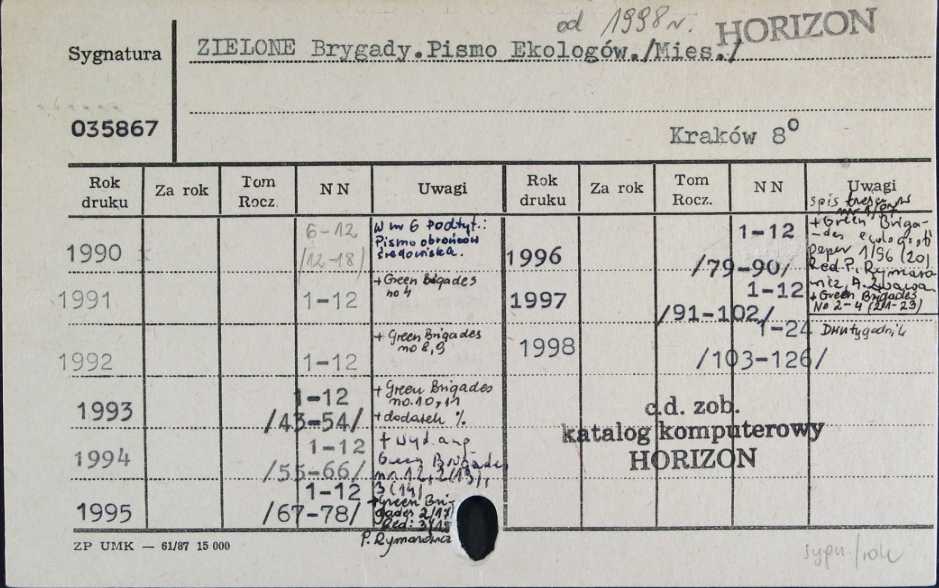 od 1998 r. HORIZON
Sygnatura
ZIELONE Brygady.Pismo Ekologów./Mies./
035867
Kraków 8°
Rok druku | Za rok | Tom Rocz. | NN | Uwagi | Rok druku | Za rok | Tom Rocz. | NN | Uwagi
1990
6-12
/12-18/
w nr 6 podtyt.:
Pismo obrońców
środowiska.
1991
1-12
+ Green Brigades
no 4
1992
1-12
+ Green Brigades
no 8, 9
1993
1-12
/43-54/
+ Green Brigades
no. 10, 11
+ dodatek %
1994
1-12
/55-66/
+ wyd ang
Green Brigades
nr 12, 2(13),
3(14)
1995
1-12
/67-78/
+ Green Bri-
gades 2/17/
Red:
P. Rymarowicz
spis treści
1996
1-12
/79-90/
+ Green Briga-
-des ecologist
paper 1/96 (20)
Red. P. Rymaro
wicz, A. Żwawa
1997
1-12
/91-102/
+ Green Brigades
No 2-4 (21-23)
1998
1-24
/103-126/
Dwutygodnik
c.d. zob.
katalog komputerowy
HORIZON
ZP UMK — 61/87 15 000
sygn/rok